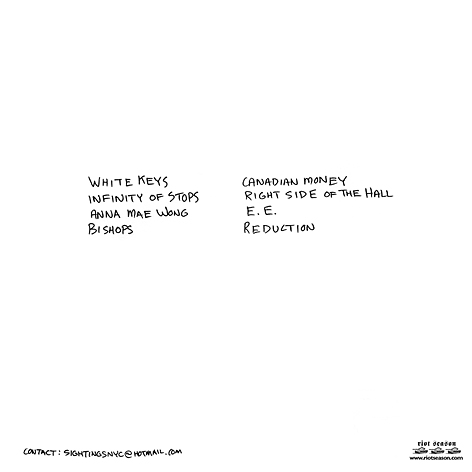 WHITE KEYS
INFINITY OF STOPS
ANNA MAE WONG
BISHOPS
CANADIAN MONEY
RIGHT SIDE OF THE HALL
E. E.
REDUCTION
CONTACT: SIGHTINGSNYC@HOTMAIL.COM
riot season
www.riotseason.com